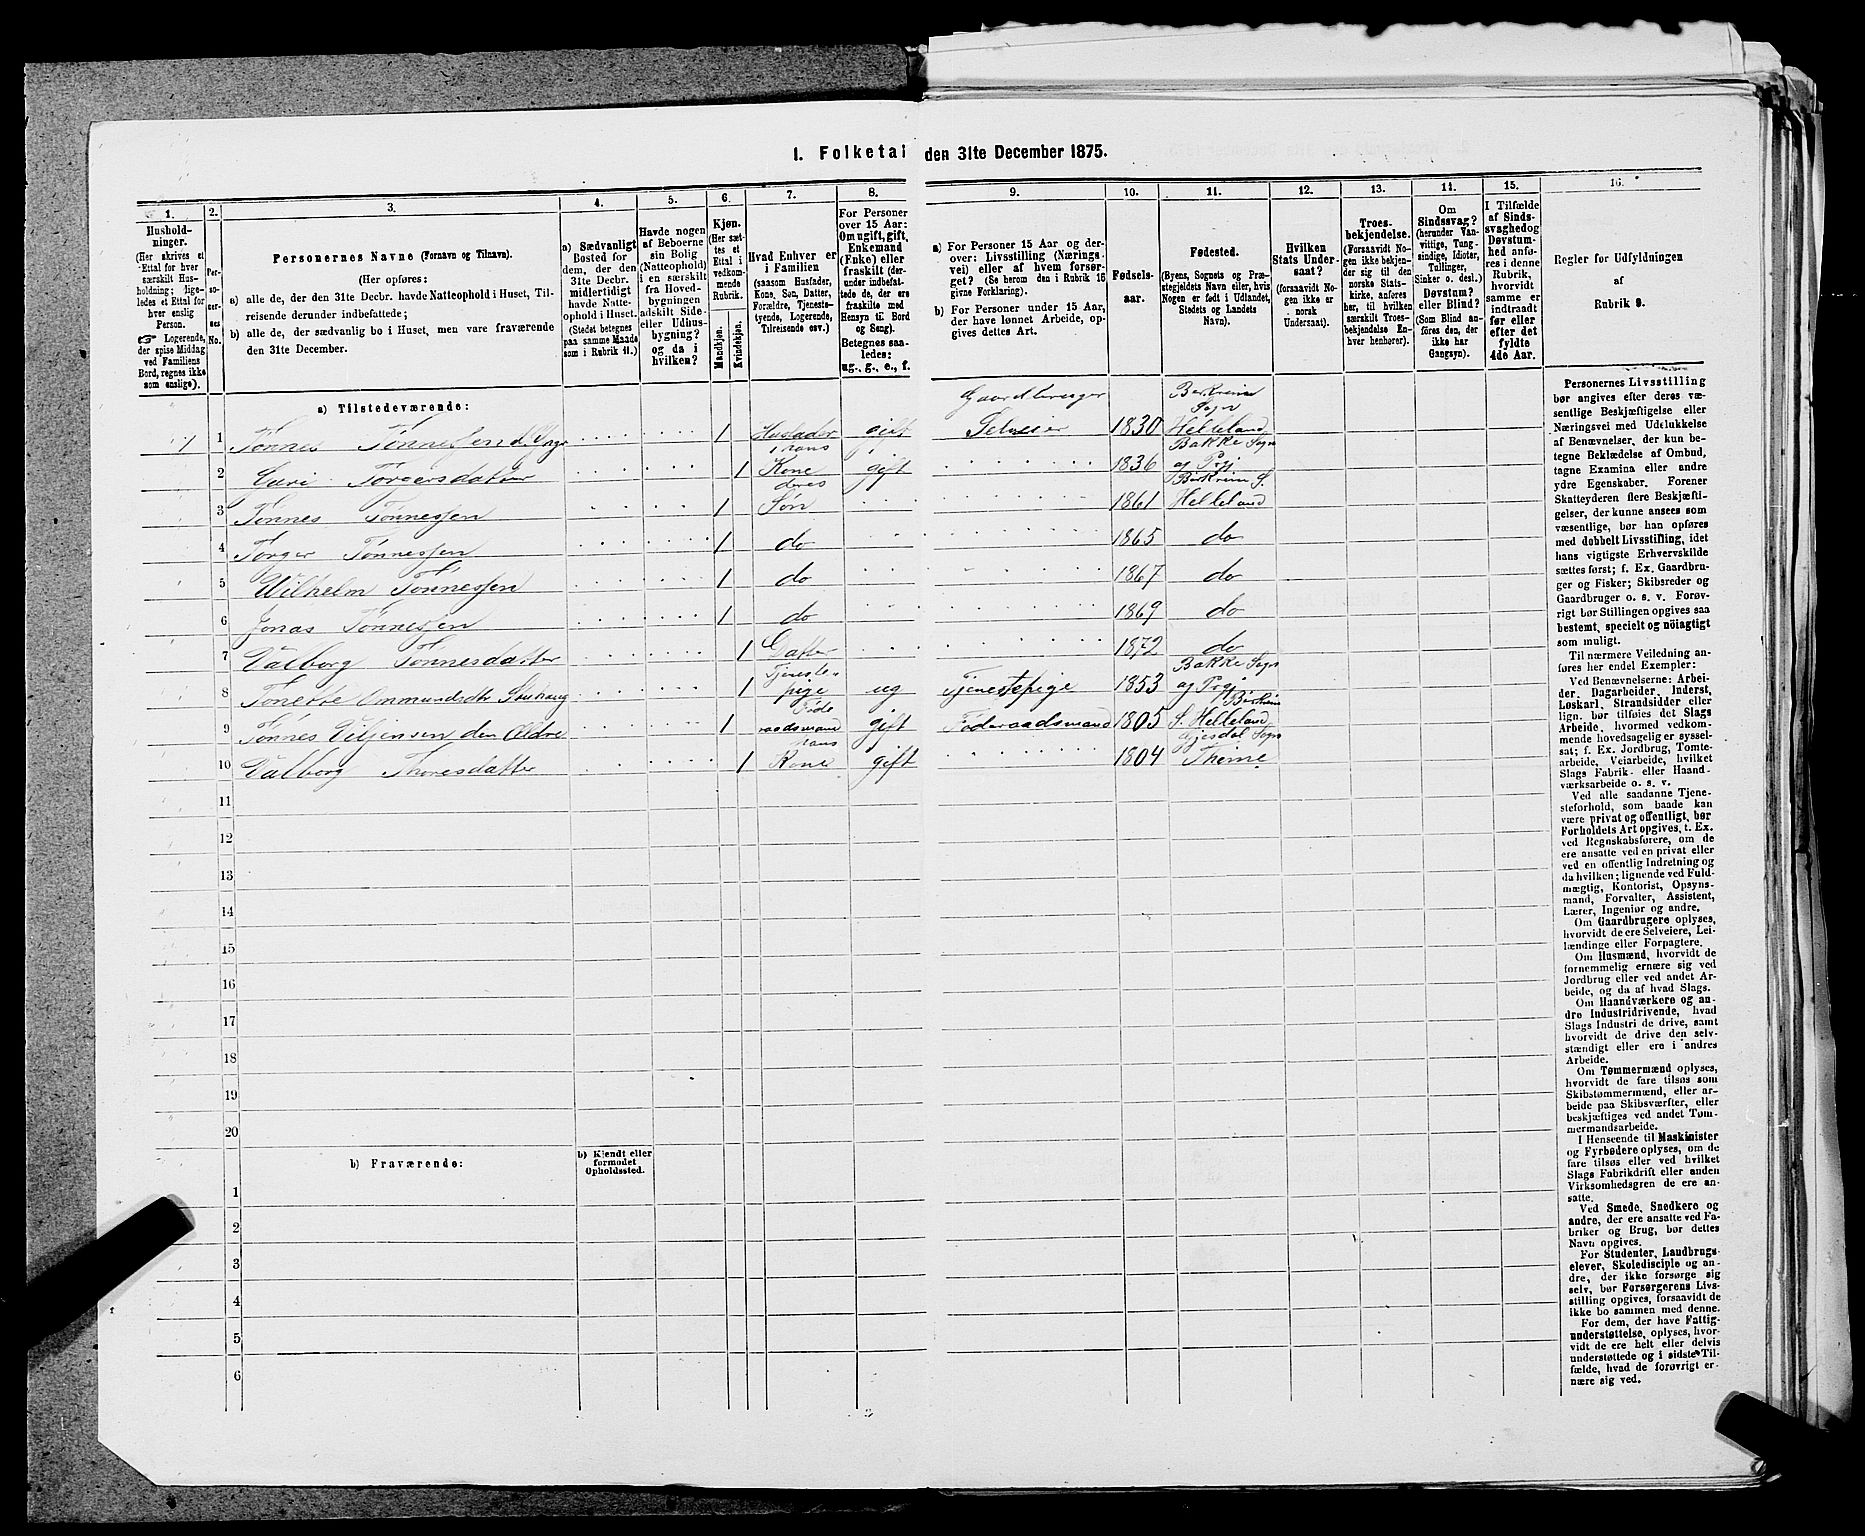 1. Folketal den 31te December 1875.
1. 2. 3. 4. 5. 6. 7. 8. 9. 10. 11. 12. 13. 14. 15. 16.
Hushold-
ninger.
(Her skrives et
Ettal for hver
særskilt Hus-
holdning; lige-
ledes et Ettal for
hver enslig
Person.
☞ Logerende,
der spise Middag
ved Familiens
Bord, regnes ikke
som enslige).
Per-
so-
ner-
nes
No.
Personernes Navne (Fornavn og Tilnavn).
(Her opføres:
a) alle de, der den 31te Decbr. havde Natteophold i Huset, Til-
reisende derunder indbefattede;
b) alle de, der sædvanlig bo i Huset, men vare fraværende
den 31te December.
a) Sædvanligt
Bosted for
dem, der den
31te Decbr.
midlertidigt
havde Natte-
ophold i Huset.
(Stedet betegnes
paa samme Maade
som i Rubrik 11.)
Havde nogen
af Beboerne
sin Bolig
(Natteophold)
i en særskilt
fra Hoved-
bygningen
adskilt Side-
eller Udhus-
bygning?
og da i
hvilken?
Kjøn.
(Her sæt-
tes et
Ettal i
vedkom-
mende
Rubrik.
Mandkjøn.
Kvindekjøn.
Hvad Enhver er
i Familien
(saasom Husfader,
Kone, Søn, Datter,
Forældre, Tjeneste-
tyende, Logerende,
Tilreisende osv.)
For Personer
over 15 Aar:
Om ugift, gift,
Enkemand
(Enke) eller
fraskilt (der-
indbefat-
tede de, der ere
fraskilte med
Hensyn til Bord
og Seng).
Betegnes saa-
ledes:
ug., g., e., f.
a) For Personer 15 Aar og der-
over: Livsstilling (Nærings-
vei) eller af hvem forsør-
get? (Se herom den i Rubrik 16
givne Forklaring).
b) For Personer under 15 Aar,
der have lønnet Arbeide, op-
gives dettes Art.
Fødsels-
aar.
Fødested.
(Byens, Sognets og Præ-
stegjeldets Navn eller, hvis
Nogen er født i Udlandet,
Stedets og Landets
Navn).
Hvilken
Stats Under-
saat?
(forsaavidt No-
gen ikke er
norsk
Undersaat).
Troes-
bekjendelse.
(Forsaavidt No-
gen ikke bekjen-
der sig til den
norske Stats-
kirke, anføres
her, til hvilken
særskilt Troes-
bekjendelse En-
hver henhører).
Om
Sindssvag?
(herunder Van-
vittige, Tung-
sindige, Idioter,
Tullinger,
Sinker o. desl.)
Døvstum?
eller Blind?
(Som Blind an-
føres den, der
ikke har
Gangsyn).
I Tilfælde
af Sinds-
svaghed og
Døvstum-
hed anfø-
res i denne
Rubrik,
hvorvidt
samme er
indtraadt
før eller
efter det
fyldte
4de Aar.
Regler for Udfyldningen
af
Rubrik 9.
a) Tilstedeværende:
1 1 Tønnes Tønnessen d. Yngre 1 Husfader gift Gaardbruger Selveier 1830 Birkreim Sogn Helleland
2 Guri Torgersdatter 1 hans Kone gift 1836 Bakke Sogn og Prgj
3 Tønnes Tønnessen 1 deres Søn 1861 Birkreim S. Helleland
4 Torger Tønnessen 1 do 1865 do
5 Wilhelm Tønnessen 1 do 1867 do
6 Jonas Tønnessen 1 do 1869 do
7 Valborg Tønnesdatter 1 Datter 1872 do
8 Tonette Ommundsdtr 1 Tjeneste-pige ug Tjenestepige 1853 Bakke Sogn og Prgj
9 Tønnes Veljensen den Ældre 1 Føderaadsmand gift Føderaadsmand 1805 Birkreim S. Helleland
10 Valborg Thoresdatter 1 hans Kone gift 1804 Gjesdal Sogn Thime
11
12
13
14
15
16
17
18
19
20
b) Fraværende:
b) Kjendt eller
formodet
Opholdssted.
1
2
3
4
5
6
Personernes Livsstilling
bør angives efter deres væ-
sentlige Beskjæftigelse eller
Næringsvei med Udelukkelse
af Benævnelser, der kun be-
tegne Beklædelse af Ombud,
tagne Examina eller andre
ydre Egenskaber. Forener
Skatteyderen flere Beskjæfti-
gelser, der kunne ansees som
væsentlige, bør han opføres
med dobbelt Livsstilling, idet
hans vigtigste Erhvervskilde
sættes først; f. Ex. Gaardbru-
ger og Fisker; Skibsreder og
Gaardbruger o. s. v. Forøv-
rigt bør Stillingen opgives saa
bestemt, specielt og nöiagtigt
som muligt.
Til nærmere Veiledning an-
føres her endel Exempler:
Ved Benævnelserne: Arbei-
der, Dagarbeider, Inderst,
Løskarl, Strandsidder eller
lign. bør tilføies det Slags
Arbeide, hvormed vedkom-
mende hovedsagelig er syssel-
sat; f. Ex. Jordbrug, Tomte-
arbeide, Veiarbeide, hvilket
Slags Fabrik- eller Haand-
værksarbeide o. s. v.
Ved alle saadanne Tjene-
steforhold, som baade kan
være privat og offentligt, bør
Forholdets Art opgives, t. Ex.
ved Regnskabsførere, om de
ere ansatte ved en privat eller
ved en offentlig Indretning og
da hvilken; lignende ved Fuld-
mægtig, Kontorist, Opsyns-
mand, Forvalter, Assistent,
Lærer, Ingeniør og andre.
Om Gaardbrugere oplyses,
hvorvidt de ere Selveiere, Lei-
lændinge eller Forpagtere.
Om Husmænd, hvorvidt de
fornemmelig ernære sig ved
Jordbrug eller ved andet Ar-
beide, og da af hvad Slags.
Om Haandværkere og an-
dre Industridrivende, hvad
Slags Industri de drive, samt
hvorvidt de drive den selv-
stændigt eller ere i andres
Arbeide.
Om Tømmermænd oplyses,
hvorvidt de fare tilsøs som
Skibstømmermænd, eller ar-
beide paa Skibsværfter, eller
beskjæftiges ved andet Tøm-
mermandsarbeide.
I Henseende til Maskinister
og Fyrbødere oplyses, om de
fare tilsøs eller ved hvilket
Slags Fabrikdrift eller anden
Virksomhedsgren de ere an-
satte.
Ved Smede, Snedkere og
andre, der ere ansatte ved Fa-
briker og Brug, bør dettes
Navn opgives.
For Studenter, Landbrugs-
elever, Skoledisciple og an-
dre, der ikke forsørge sig
selv, bør Forsørgerens Livs-
stilling opgives, forsaavidt de
ikke bo sammen med denne.
For dem, der have Fattig-
understøttelse, oplyses, hvor-
vidt de ere helt eller delvis
understøttede og i sidste Til-
fælde, hvad de forøvrigt er-
nære sig ved.